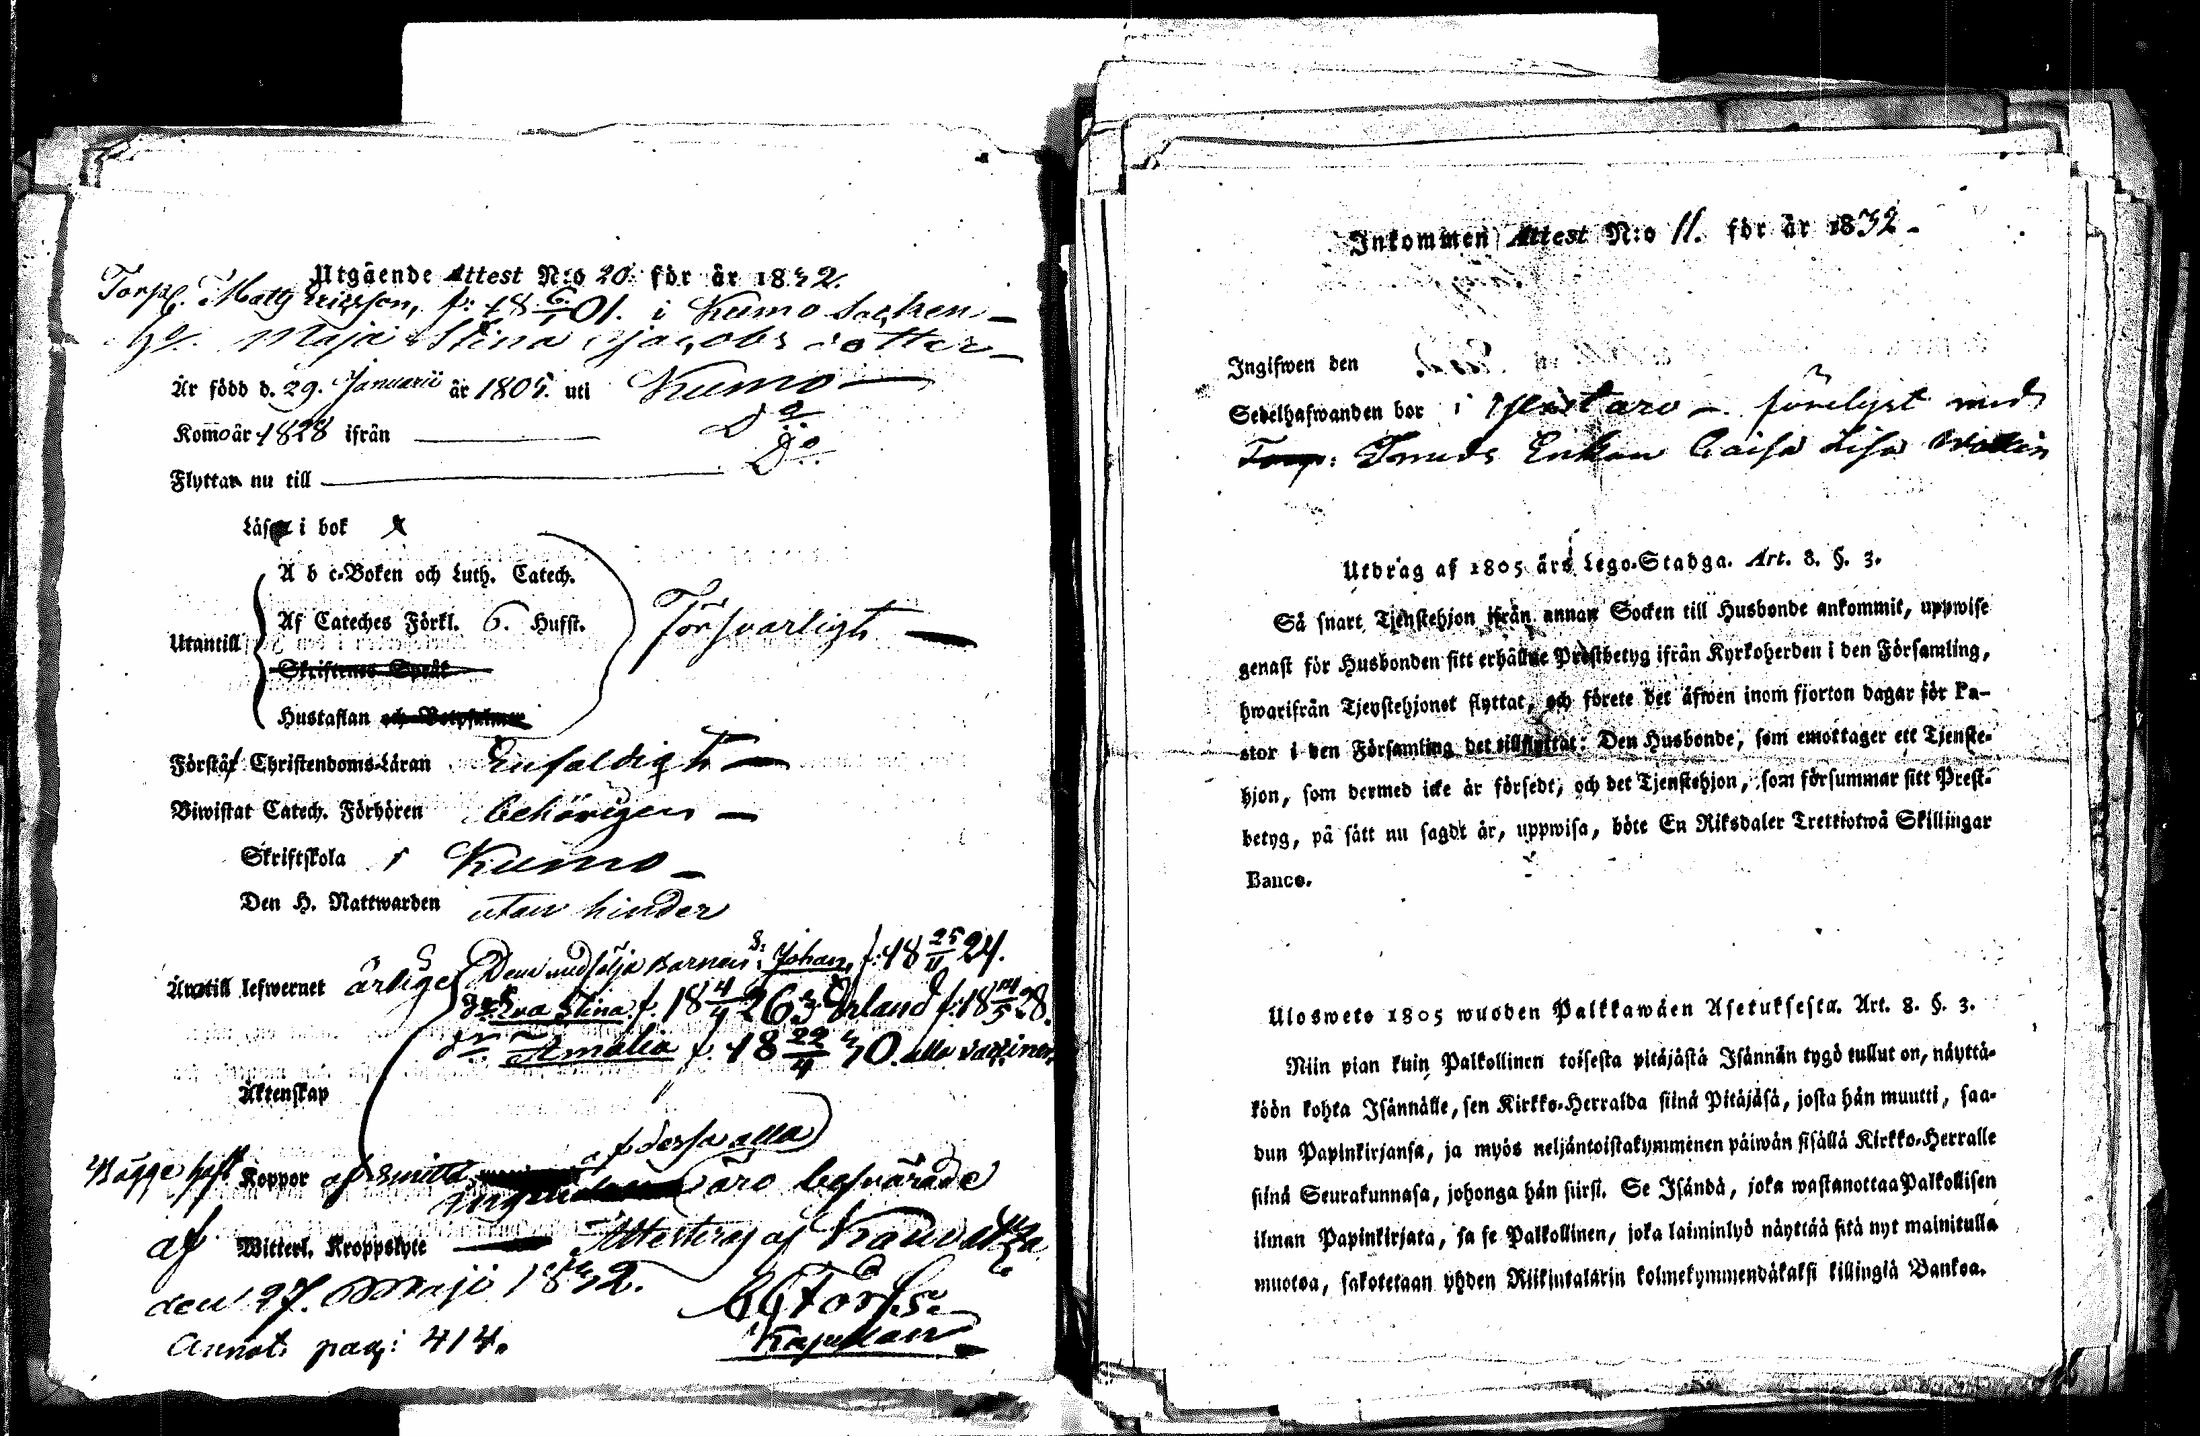 Utgående Attest N:o 20. för år 1832.
Torp. Matts Ericsson, f. 18 6/1 01. i Kumo Socken —
H. Maja Stina Jacobs dotter —
Är född d. 29. Januarii år 1805. uti Kumo —
Kom år 1828 ifrån — Do
Flyttar nu till — Do.
Läsa i bok
A b c-Boken och Luth. Catech.
Utantill Af Cateches Förkl. 6. Hufst. Försvarligt —
Skriftenes Språk
Hustaflan och Botpsalmer
Förstår Christendoms-Läran Enfaldigt —
Biwistat Catech. Förhören behörigen —
Skriftskola i Kumo —
Den H. Nattwarden utan hinder
Dem medfölja Barnen: S: Johan, f. 18 25/11 24.
Är till lefwernet ärlige
Dr Eva Stina f. 18 4/4 26, Erland f. 18 14/5 28.
Dr Amalia f. 18 22/4 30. alla vacciner.
Äktenskap
af dessa alla
Bägge haft Koppor af smitta äro besvärade
af Witterl. Kroppslyte — Attesteras af
den 27. Maji 1832.
Kapellan
Annot. pag: 414.
Inkommen Attest N:o 11. för år 1832 -
Ingifwen den
Sedelhafwanden bor i — förelyst med
Enkan Caisa Lisa Wallin
Utdrag af 1805 års Lego-Stadga. Art. 8. §. 3.
Så snart Tjenstehjon ifrån annan Socken till Husbonde ankommit, uppwise
genast för Husbonden sitt erhållne Prestbetyg ifrån Kyrkoherden i den Församling,
hwarifrån Tjenstehjonet flyttat, och förete det äfwen inom fjorton dagar för Pa-
stor i den Församling det tillflyttat: Den Husbonde, som emottager ett Tjenste-
hjon, som dermed icke är försedt, och det Tjenstehjon, som försummar sitt Prest-
betyg, på sätt nu sagdt är, uppwisa, böte En Riksdaler Trettiotwå Skillingar
Banco.
Ulosweto 1805 wuoden Palkkawäen Asetuksesta. Art. 8. §. 3.
Niin pian kuin Palkollinen toisesta pitäjästä Isännän tygö tullut on, näyttä-
köön kohta Isännälle, sen Kirkko-Herralda siinä Pitäjäsä, josta hän muutti, saa-
dun Papinkirjansa, ja myös neljäntoistakymmenen päiwän sisällä Kirkko-Herralle
siinä Seurakunnasa, johonga hän siirsi. Se Isändä, joka wastanottaa Palkollisen
ilman Papinkirjata, ja se Palkollinen, joka laiminlyö näyttää sitä nyt mainitulla
muotoa, sakotetaan yhden Riikinkalarin kolmekymmendäkaksi killingiä Bankoa.